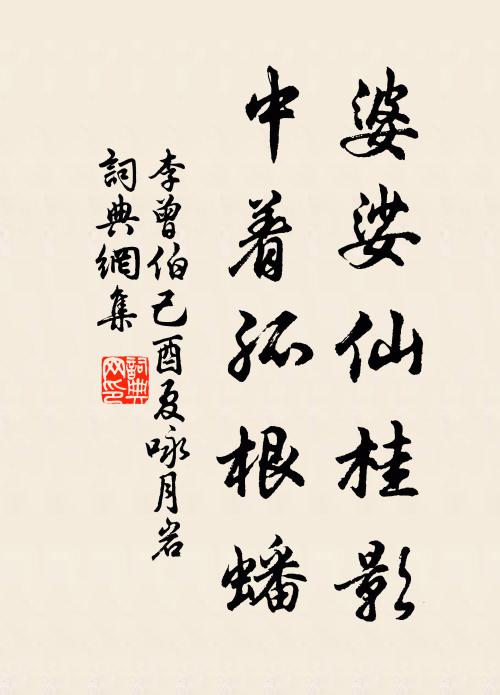 婆娑仙桂影
中着孤根蟠
李曾伯己酉夏咏月岩
詞典網集
詞典网印